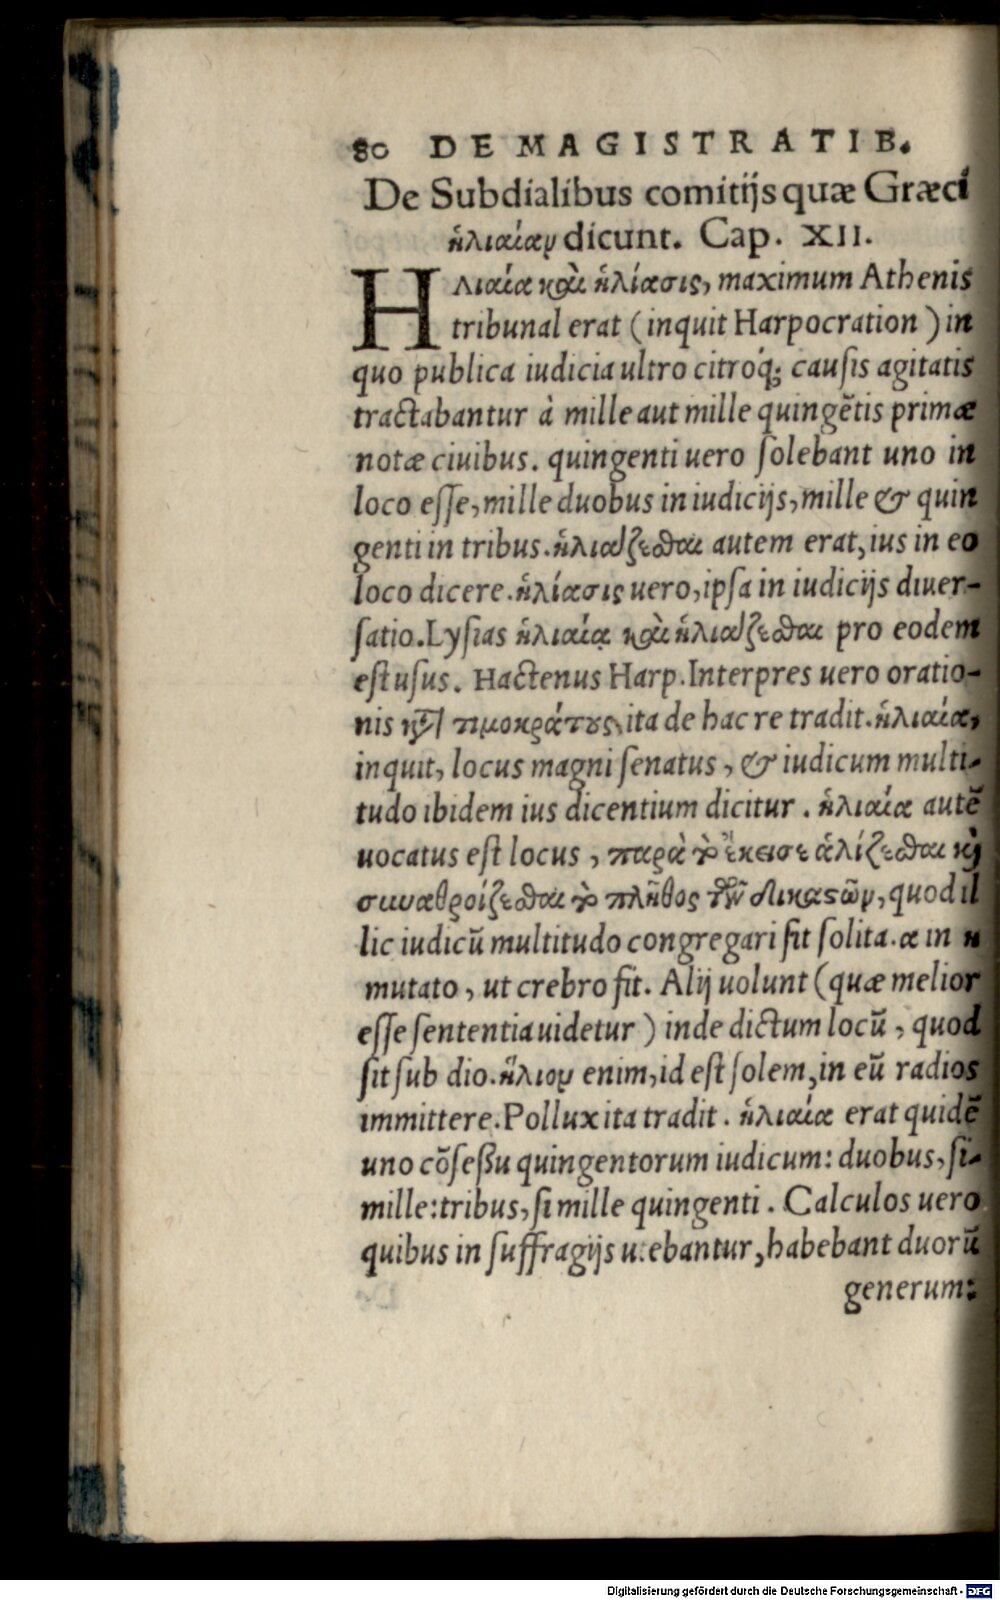 80 DE MAGISTRATIB.
De Subdialibus comitijs quæ Græci
ἡλιαίαν dicunt. Cap. XII.
Ηλιαία καὶ ἡλίασις, maximum Athenis
tribunal erat (inquit Harpocration) in
quo publica iudicia ultro citroq́; causis agitatis
tractabantur à mille aut mille quingẽtis primæ
notæ ciuibus. quingenti uero solebant uno in
loco esse, mille duobus in iudicijs, mille & quin
genti in tribus. ἡλιάζεσθαι autem erat, ius in eo
loco dicere. ἡλίασις uero, ipsa in iudicijs diuer-
satio. Lysias ἡλιαίᾳ καὶ ἡλιάζεσθαι pro eodem
est usus. Hactenus Harp. Interpres uero oratio-
nis κτ̃ τιμοκράτους, ita de hac re tradit. ἡλιαία,
inquit, locus magni senatus, & iudicum multi-
tudo ibidem ius dicentium dicitur. ἡλιαία autẽ
uocatus est locus, παρὰ τὸ ἐκεισε ἁλίζεσθαι κὶ
συναθροίζεσθαι τὸ πλῆθος τῶν δικαστῶν, quod il
lic iudicũ multitudo congregari sit solita. α in η
mutato, ut crebro fit. Alij uolunt (quæ melior
esse sententia uidetur) inde dictum locũ, quod
sit sub dio. ἥλιον enim, id est solem, in eũ radios
immittere. Pollux ita tradit. ἡλιαία erat quidẽ
uno cõsessu quingentorum iudicum: duobus, si-
mille: tribus, si mille quingenti. Calculos uero
quibus in suffragijs utebantur, habebant duorũ
generum:
Digitalisierung gefördert durch die Deutsche Forschungsgemeinschaft - DFG